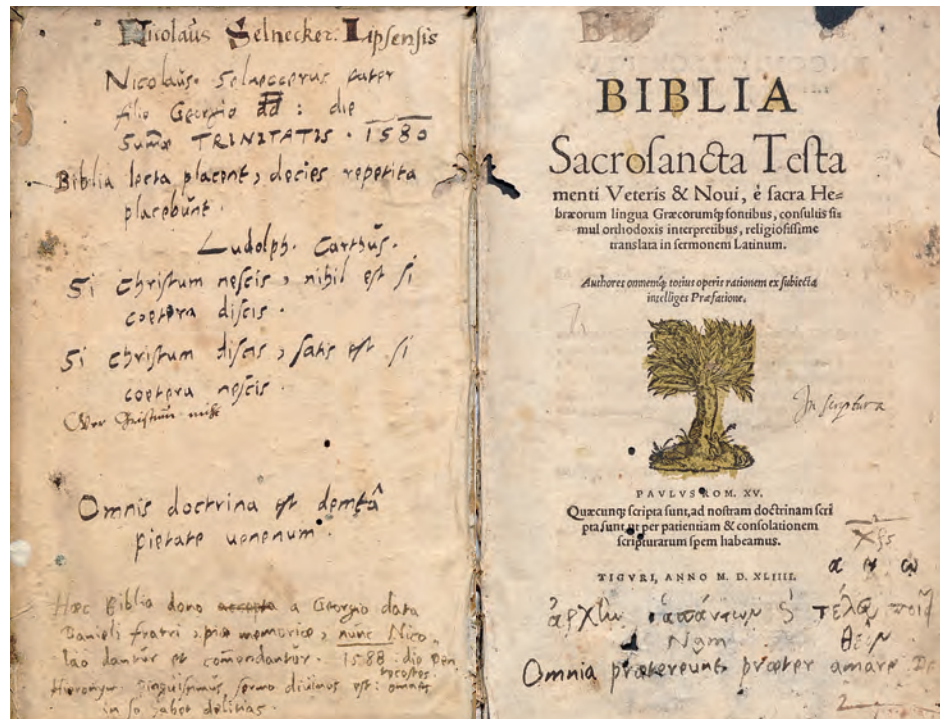 Nicolaus Selnecker: Lipsensis
Nicolaus. Selneccerus pater
filio Georgio dd : die
Sum̃æ TRINITATIS . 1580
Biblia lecta placent, decies repetita
placebunt .
Ludolph. Carthus.
Si Christum nescis, nihil est si
coetera discis .
Si Christum discis, satis est si
coetera nescis .
Omnis doctrina est demtâ
pietate uenenum .
Hæc Biblia dono accepta a Georgio data
Danieli fratri, piæ memoriæ, nunc Nico-
lao dantur et com̃endantur. 1588. die Pen
tecostes.
Hieronym: sermo diuinus est: omnes
in se habet delitias.
BIBLIA
Sacrosancta Testa
menti Veteris & Noui, è sacra He=
bræorum lingua Græcorumq́; fontibus, consultis si=
mul orthodoxis interpretibus, religiosissime
translata in sermonem Latinum.
Authores omnemq́; totius operis rationem ex subiecta
intelliges Præfatione.
In scriptura
PAVLVS ROM. XV.
Quæcunq; scripta sunt, ad nostram doctrinam scri
pta sunt, ut per patientiam & consolationem
scripturarum spem habeamus.
TIGVRI, ANNO M. D. XLIIII.
α ω
ἀρχὴν ἁπάντων τέλος ποιεῖ
Nam θεὸν
Omnia prætereunt præter amare De